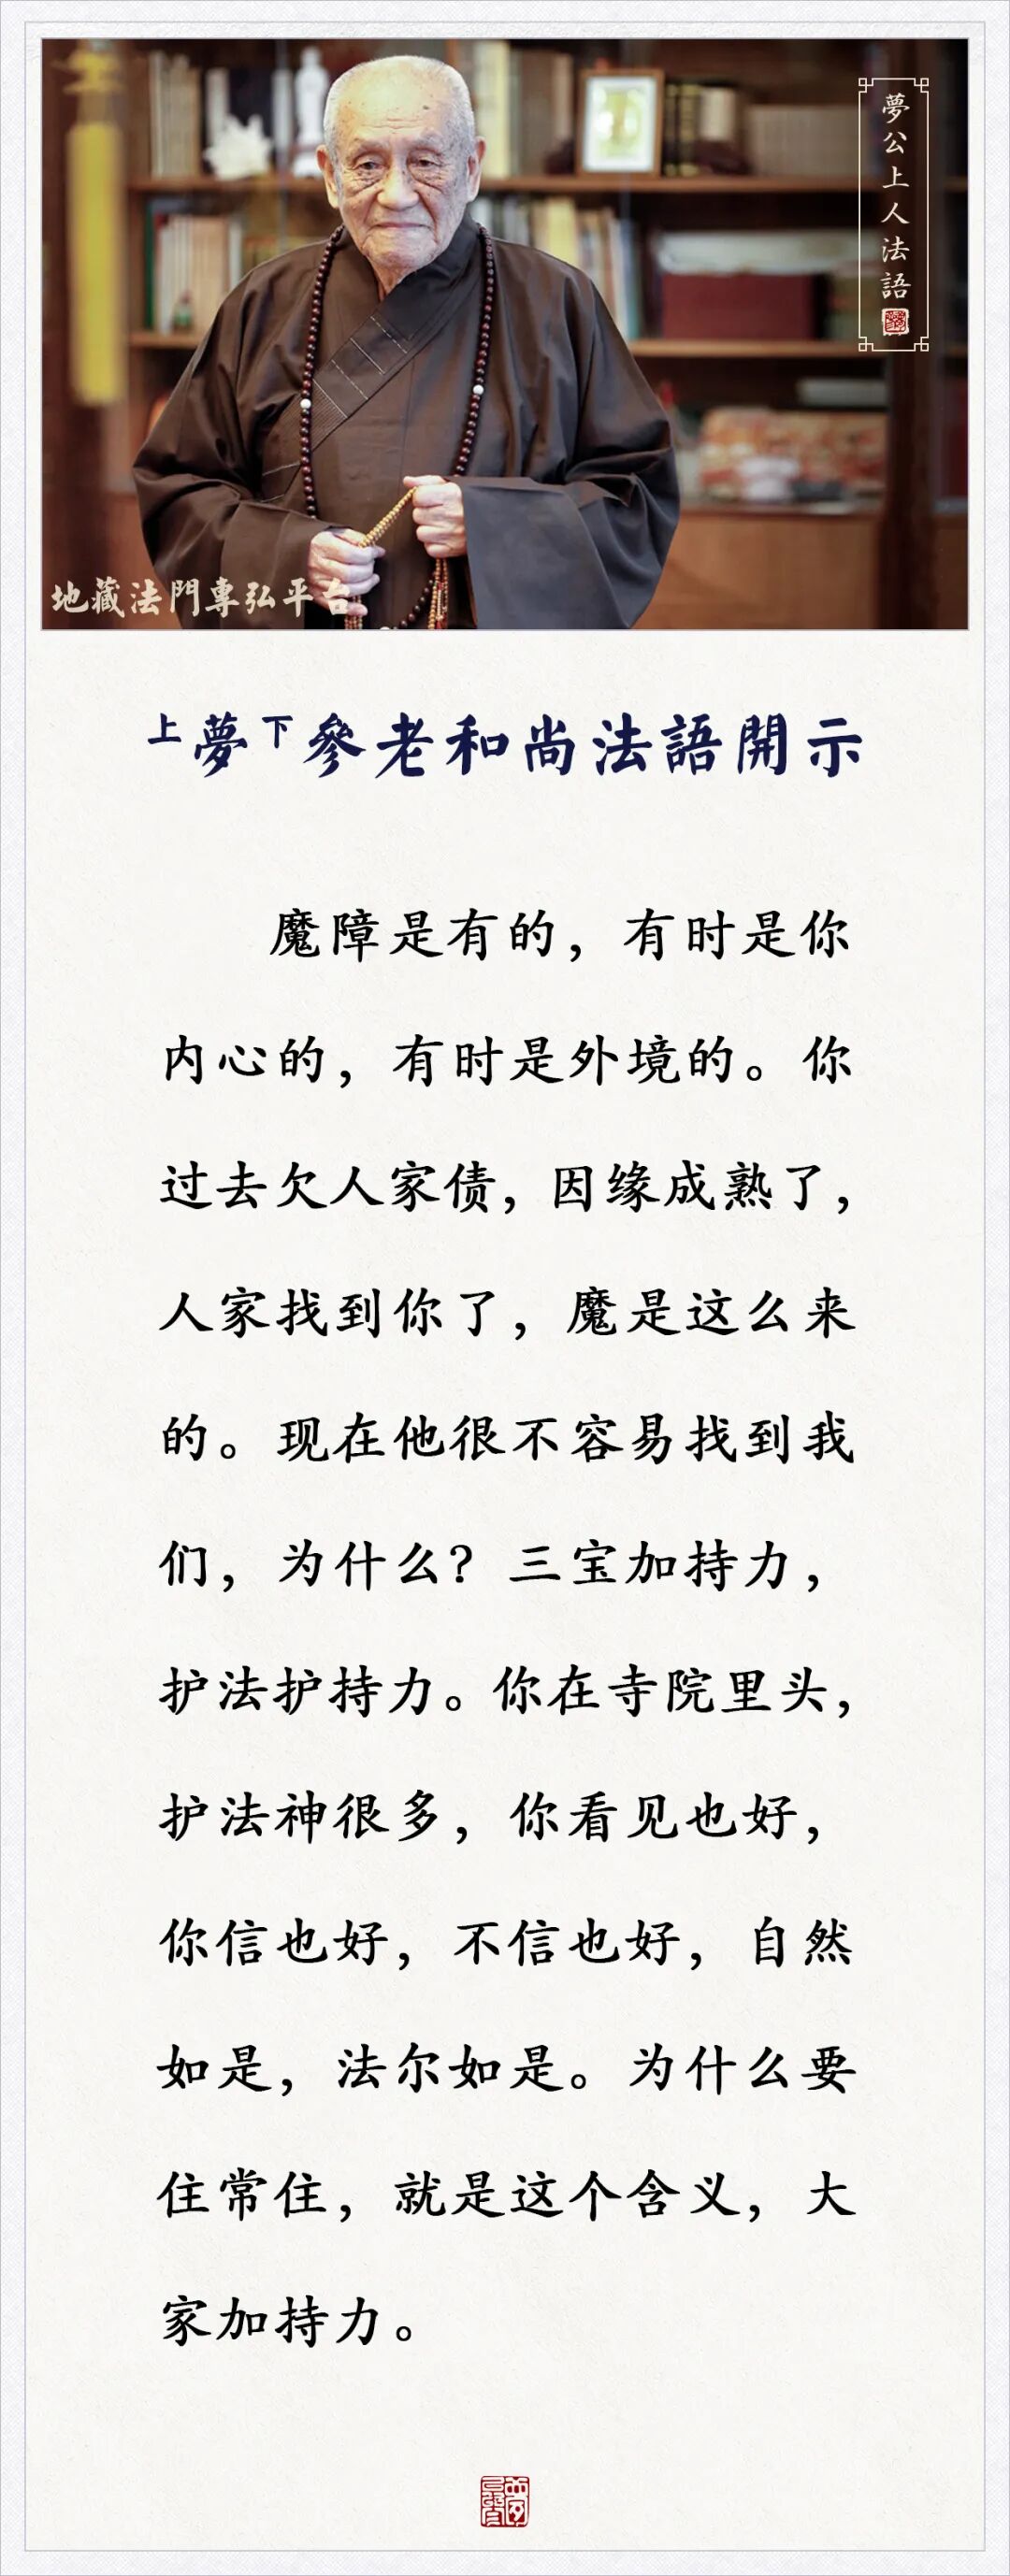 夢公上人法語
地藏法門專弘平台
上夢下參老和尚法語開示
魔障是有的，有时是你
内心的，有时是外境的。你
过去欠人家债，因缘成熟了，
人家找到你了，魔是这么来
的。现在他很不容易找到我
们，为什么？三宝加持力，
护法护持力。你在寺院里头，
护法神很多，你看见也好，
你信也好，不信也好，自然
如是，法尔如是。为什么要
住常住，就是这个含义，大
家加持力。